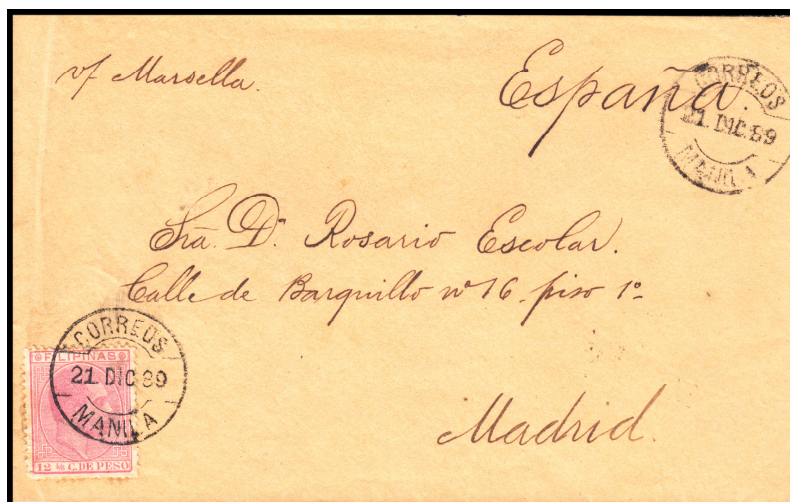 v/ Marsella.
España.
CORREOS
21 DIC 89
MANILA
Sra. Dª Rosario Escolar.
Calle de Barquillo nº 16 piso 1º
CORREOS
21 DIC 89
MANILA
FILIPINAS
12 4/8 C. DE PESO
Madrid.